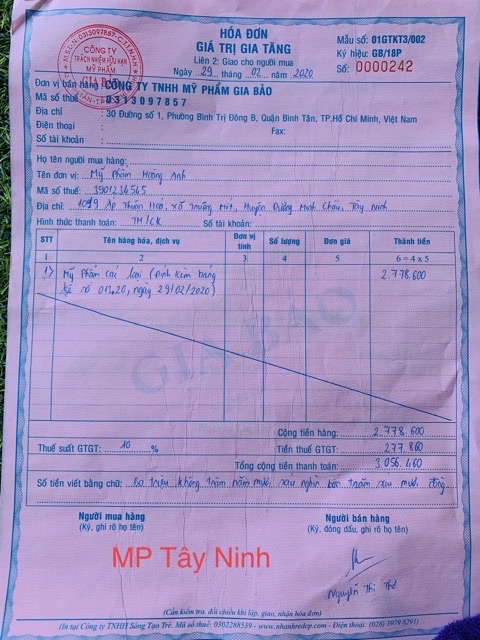 HÓA ĐƠN
GIÁ TRỊ GIA TĂNG
Liên 2: Giao cho người mua
Ngày 29 tháng 02 năm 2020
Mẫu số: 01GTKT3/002
Ký hiệu: GB/18P
Số: 0000242
M.S.D.N:0313097857-C.T.T.N.H.H
CÔNG TY
TRÁCH NHIỆM HỮU HẠN
MỸ PHẨM
GIA BẢO
Đơn vị bán hàng: CÔNG TY TNHH MỸ PHẨM GIA BẢO
Mã số thuế: 0313097857
Địa chỉ : 30 Đường số 1, Phường Bình Trị Đông B, Quận Bình Tân, TP.Hồ Chí Minh, Việt Nam
Điện thoại : Fax:
Số tài khoản :
Họ tên người mua hàng:
Tên đơn vị: Mỹ Phẩm Hoàng Anh
Mã số thuế: 3901234545
Địa chỉ: 1019 Ấp Thuận Hoà, Xã Trường Mít, Huyện Dương Minh Châu, Tây Ninh
Hình thức thanh toán: TM/CK Số tài khoản:
STT Tên hàng hóa, dịch vụ Đơn vị tính Số lượng Đơn giá Thành tiền
1 2 3 4 5 6 = 4 x 5
1) Mỹ Phẩm các loại (Đính kèm bảng 2.778.600
kê số 013.20, ngày 29/02/2020)
GIA BẢO
Cộng tiền hàng: 2.778.600
Thuế suất GTGT: 10 % Tiền thuế GTGT: 277.860
Tổng cộng tiền thanh toán: 3.056.460
Số tiền viết bằng chữ: Ba triệu không trăm năm mươi sáu nghìn bốn trăm sáu mươi đồng
Người mua hàng
(Ký, ghi rõ họ tên)
Người bán hàng
(Ký, đóng dấu, ghi rõ họ tên)
MP Tây Ninh
Nguyễn Thị Thê
(Cần kiểm tra, đối chiếu khi lập, giao, nhận hóa đơn)
(In tại Công ty TNHH Sáng Tạo Trẻ. Mã số thuế: 0302288539 - www.nhanhredep.com - Điện thoại: (028) 3979 8291)